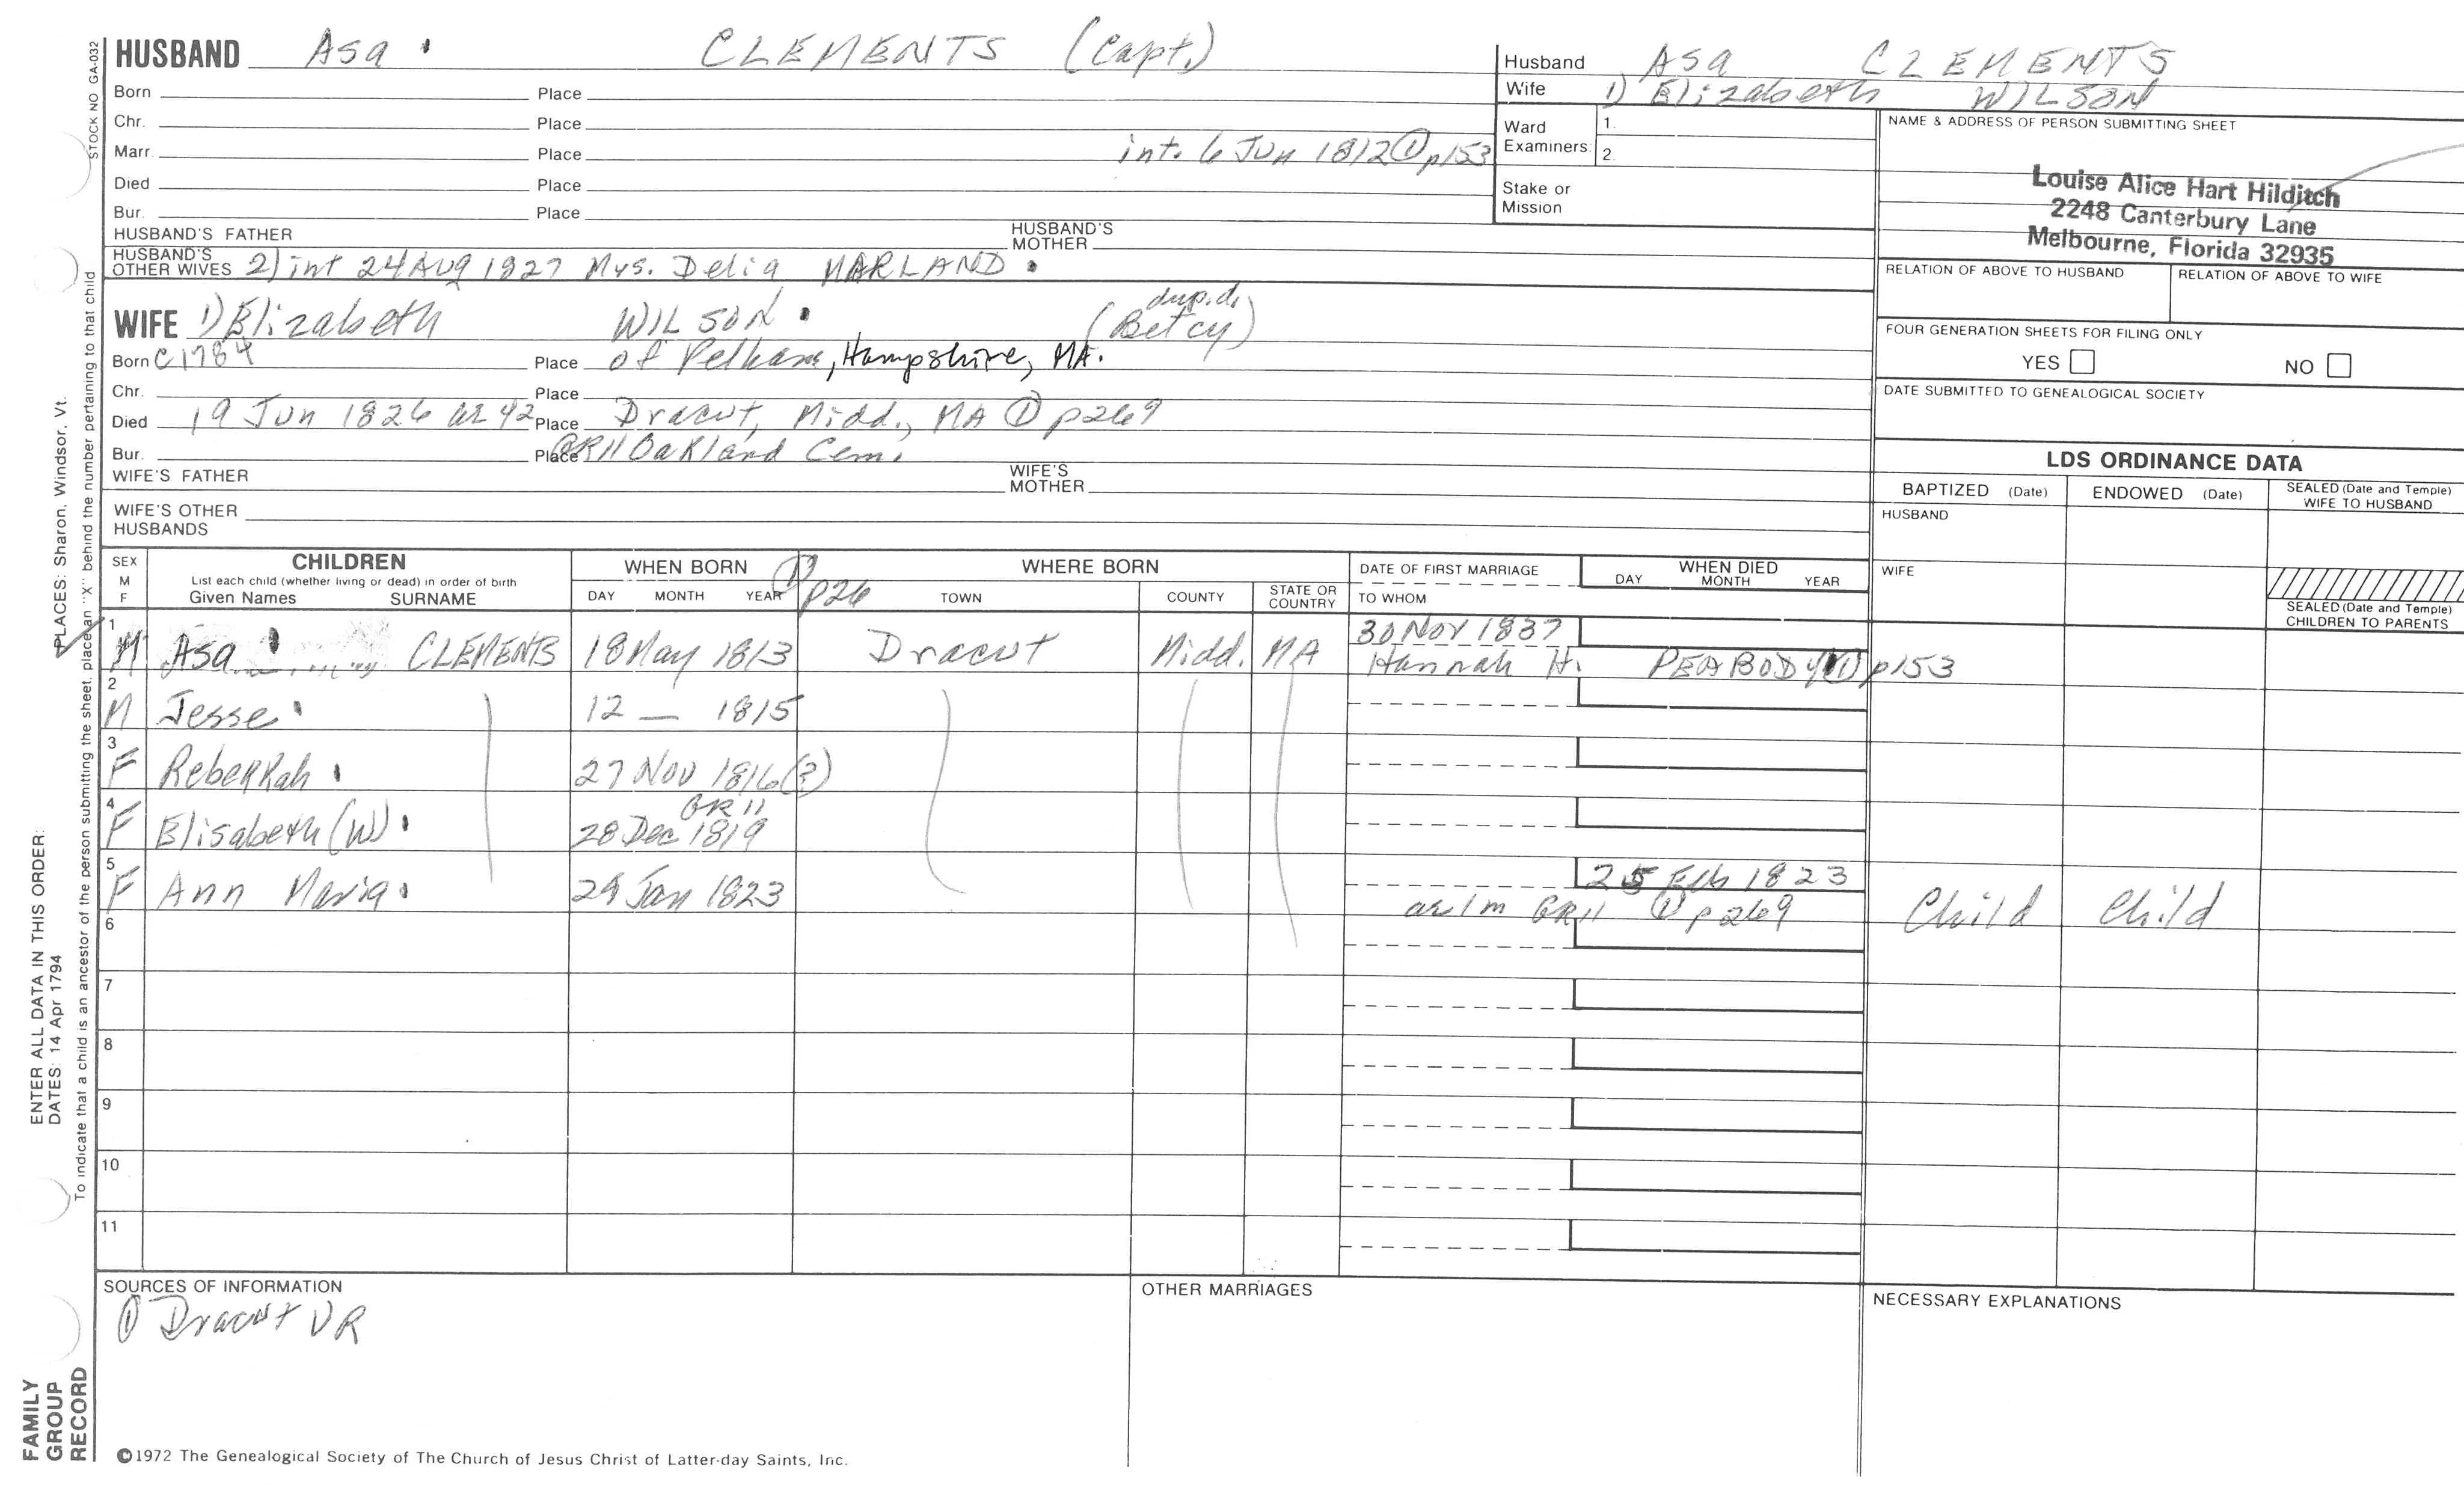 STOCK NO GA-032
HUSBAND Asa CLEMENTS (Capt.)
Born Place
Chr. Place
Marr. Place int. 6 Jun 1812 ① p153
Died Place
Bur. Place
HUSBAND'S FATHER HUSBAND'S MOTHER
HUSBAND'S OTHER WIVES 2) int 24 Aug 1827 Mrs. Delia MARLAND
WIFE 1) Elizabeth WILSON (Betcy) dup.d.
Born c1784 Place of Pelham, Hampshire, MA.
Chr. Place
Died 19 Jun 1826 ae 42 Place Dracut, Midd., MA ① p269
Bur. Place GR11 Oakland Cem.
WIFE'S FATHER WIFE'S MOTHER
WIFE'S OTHER HUSBANDS
Husband Asa CLEMENTS
Wife 1) Elizabeth WILSON
Ward Examiners: 1.
2.
Stake or Mission
NAME & ADDRESS OF PERSON SUBMITTING SHEET
Louise Alice Hart Hilditch
2248 Canterbury Lane
Melbourne, Florida 32935
RELATION OF ABOVE TO HUSBAND RELATION OF ABOVE TO WIFE
FOUR GENERATION SHEETS FOR FILING ONLY
YES NO
DATE SUBMITTED TO GENEALOGICAL SOCIETY
LDS ORDINANCE DATA
BAPTIZED (Date) ENDOWED (Date) SEALED (Date and Temple) WIFE TO HUSBAND
HUSBAND
WIFE
SEALED (Date and Temple) CHILDREN TO PARENTS
SEX M F CHILDREN WHEN BORN ① p26 WHERE BORN DATE OF FIRST MARRIAGE WHEN DIED
List each child (whether living or dead) in order of birth
Given Names SURNAME DAY MONTH YEAR TOWN COUNTY STATE OR COUNTRY TO WHOM DAY MONTH YEAR
1 M Asa CLEMENTS 18 May 1813 Dracut Midd. MA 30 Nov 1837
Hannah H. PEABODY ① p153
2 M Jesse 12 — 1815
3 F Rebekkah 27 Nov 1816(?)
4 F Elisabeth (W) GR11
28 Dec 1819
5 F Ann Maria 29 Jan 1823 25 Feb 1823
ae 1m GR11 ① p269 Child Child
6
7
8
9
10
11
SOURCES OF INFORMATION
① Dracut VR
OTHER MARRIAGES
NECESSARY EXPLANATIONS
©1972 The Genealogical Society of The Church of Jesus Christ of Latter-day Saints, Inc.
FAMILY
GROUP
RECORD
ENTER ALL DATA IN THIS ORDER:
DATES: 14 Apr 1794
PLACES: Sharon, Windsor, Vt.
To indicate that a child is an ancestor of the person submitting the sheet, place an "X" behind the number pertaining to that child